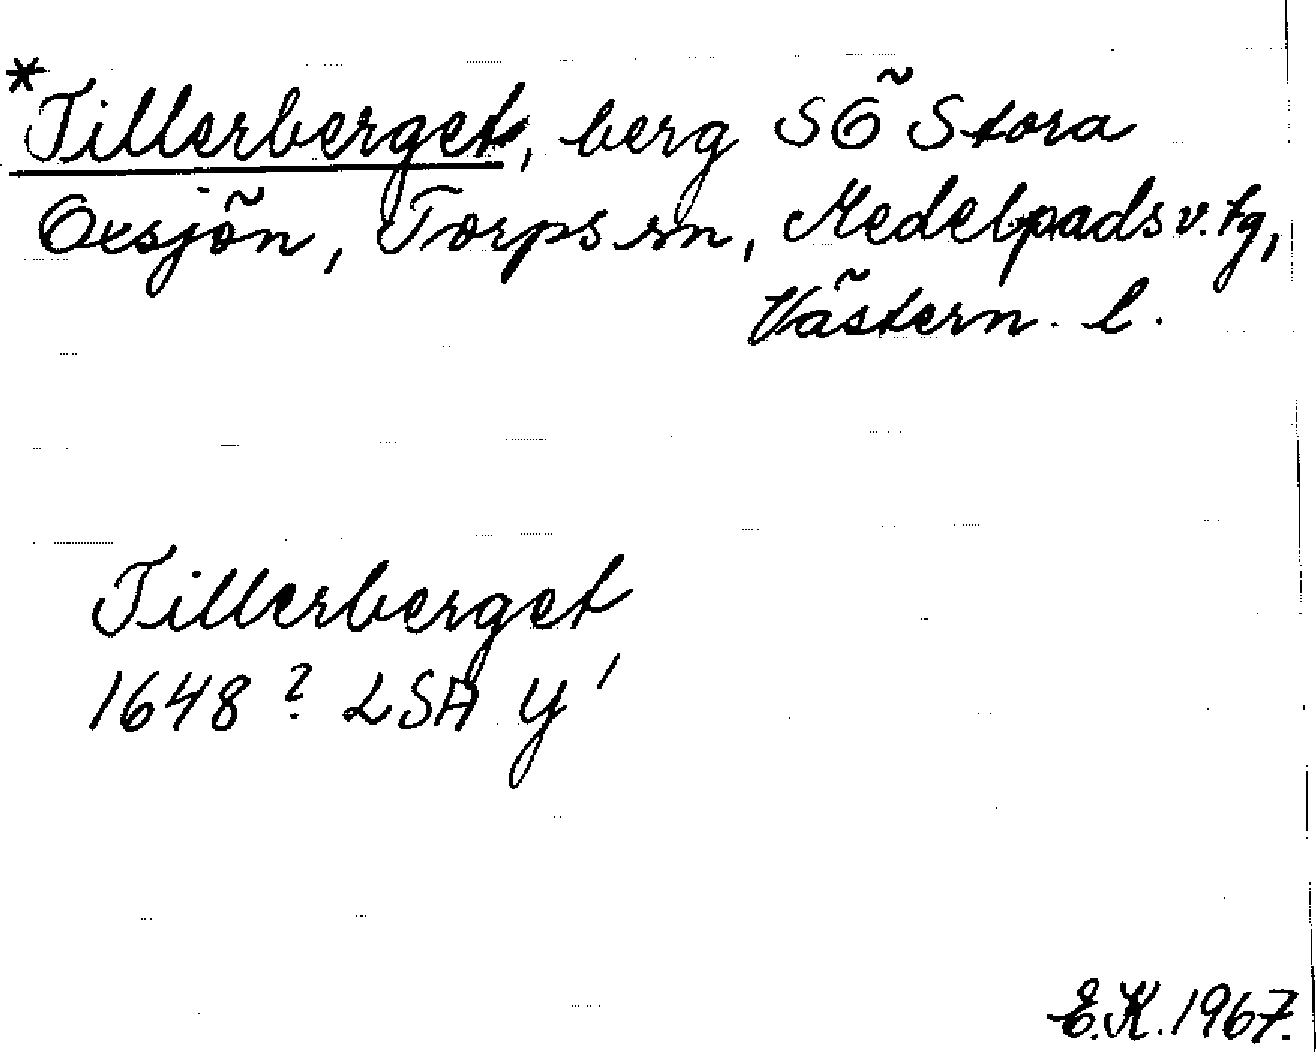 *Tillerberget, berg SÖ Stora
Oxsjön, Torps sn, Medelpads v. tg,
Västern. l.
Tillerberget
1648? LSA Y 1
E.K. 1967.